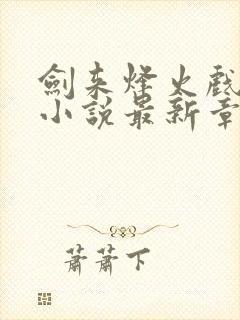 劍来烽火戲
小說最新章
蕭蕭下